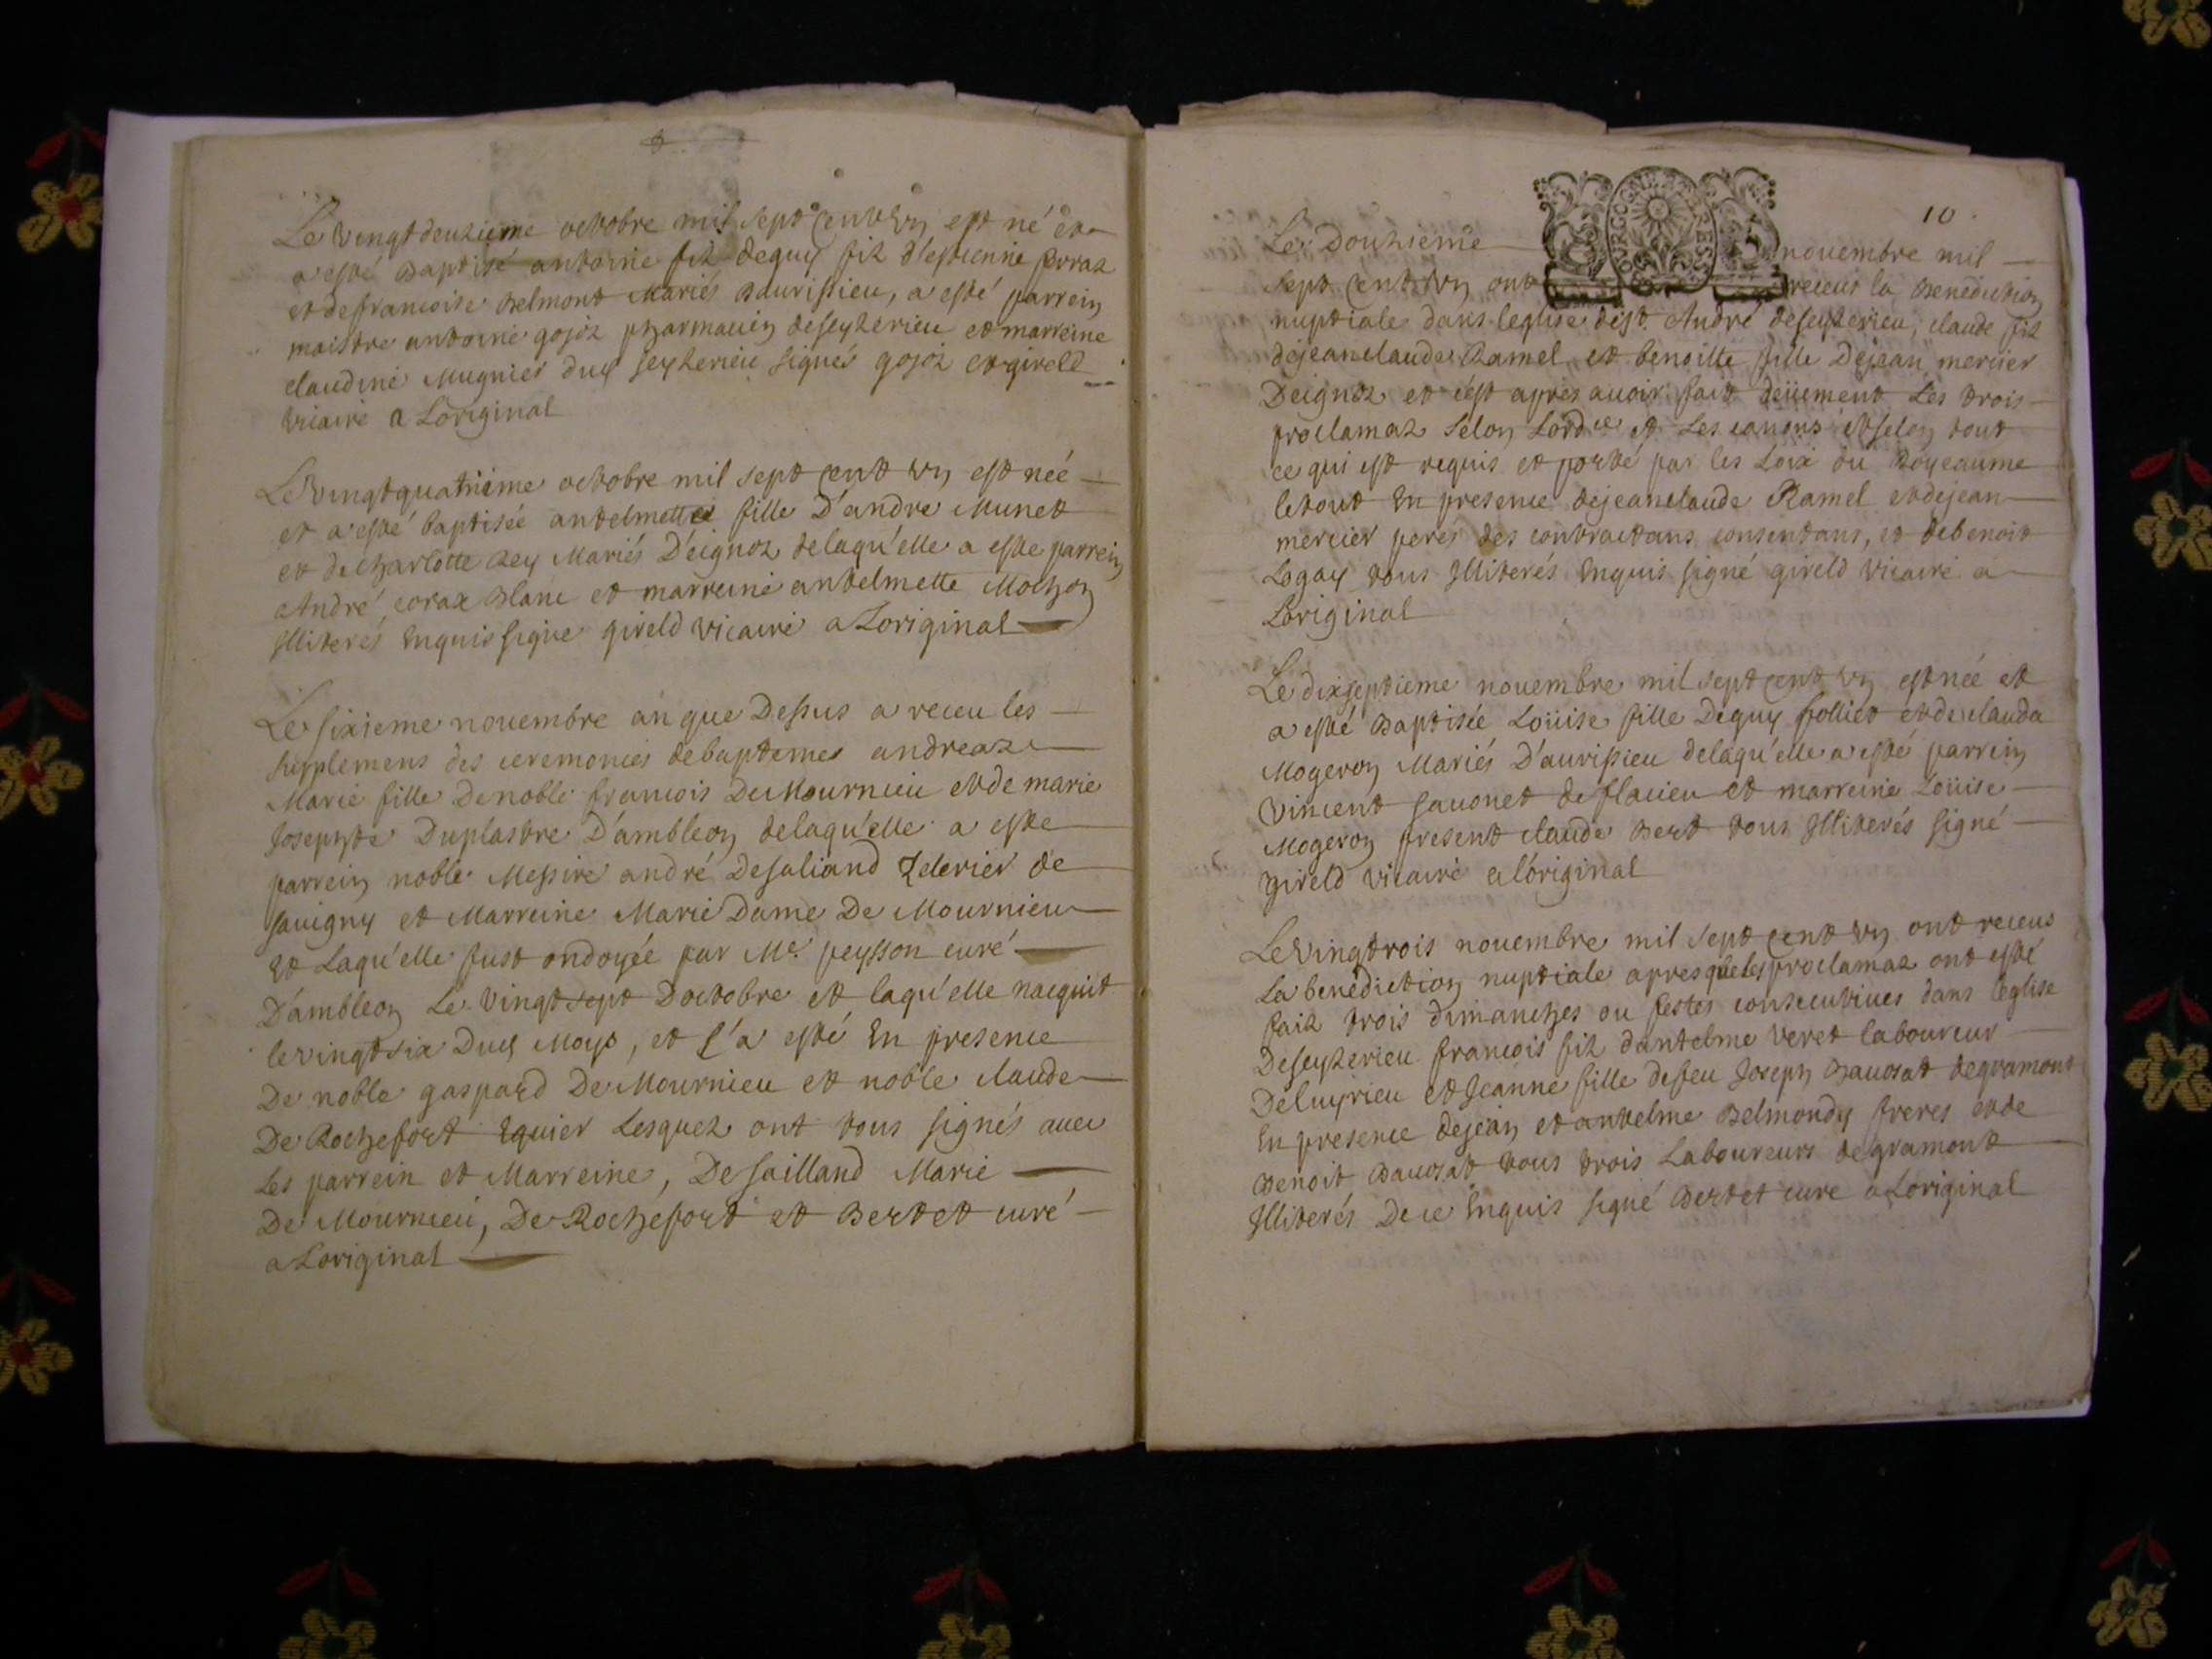 Le vingtdeuxieme octobre mil sept cent Un est né et
a esté Baptisé antoine fils de guy fils d'estienne perraz
et de francoise Belmont Mariés Daurissieu, a esté parrein
maistre antoine gojoz pharmacien de seyzerieu et marreine
claudine Mugnier duy seyzerieu signés gojoz et gireld
vicaire a Loriginal
Le vingtquatrieme octobre mil sept cent un est née
et a esté baptisée antelmette fille D'andre Munet
et de charlotte Rey Mariés D'eignoz de laqu'elle a este parrein
André corax Blanc et marreine antelmette Mochon
Illiterés Enquis signé gireld vicaire a Loriginal
Le sixieme novembre an que Dessus a receu les
supplemens des ceremonies de baptemes andreaz
Marie fille De noble francois De Mournieu et de marie
Josephte Duplastre D'ambleon de laqu'elle a este
parrein noble Messire andré Desaliand
savigny et Marreine Marie Dame De Mournieu
Et Laqu'elle fust ondoyée par Me. peysson curé
D'ambleon Le vingt sept Doctobre et laqu'elle nacquit
le vingt six Duy Moys, et l'a esté En presence
De noble gaspard De Mournieu et noble claude
De Rochefort Equier Lesquez ont tous signés avec
Les parrein et Marreine, De sailland Marie
De Mournieu, De Rochefort et Bertet curé
a Loriginal
10
BOURGOGNE BRESSE
Le Douzieme novembre mil
sept cent Un ont receus la Benediction
nuptiale dans leglise de st. André de seyzerieu, claude fils
de jean claude Ramel et benoitte fille De jean mercier
Deignoz et cest apres avoir fait deüement Les trois
proclamaz selon Lordce et Les canons et selon tout
ce qui est requis et porté par les Loix du Royeaume
le tout En presence de jean claude Ramel et de jean
mercier peres des contractans consentans, et de benoit
Logay tous Illiterés Enquis signé gireld vicaire a
Loriginal
Le dixseptieme novembre mil sept cent un est née et
a esté Baptisée Loüise fille De guy folliet et de clauda
Mogeron Mariés D'aurissieu de laqu'elle a esté parrein
vincent savonet de flacieu et marreine Loüise
Mogeron present claude Bert tous Illiterés signé
gireld vicaire a l'original
Le vingtrois novembre mil sept cent un ont receus
La benediction nuptiale apres que les proclamaz ont esté
faiz trois dimanches ou festes consecutives dans leglise
De seyzerieu francois fils dantelme veret laboureur
De luyrieu et Jeanne fille de feu Joseph Bavozat de gramont
En presence de jean et antelme Belmondy freres et de
Benoit Bavozat tous trois Laboureurs de gramont
Illiterés De ce Enquis signé Bertet cure a Loriginal